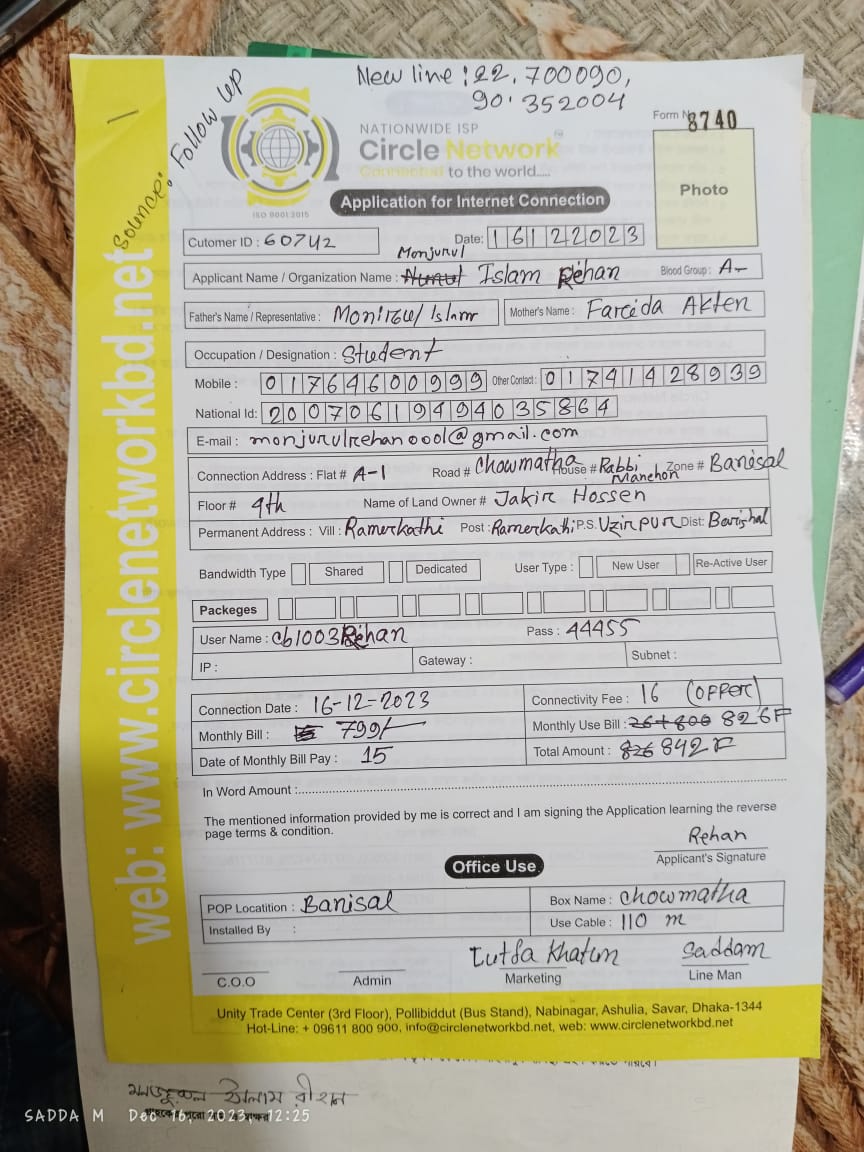 New line : 22.700090,
90.352004
Source: Follow Up
Form No 8740
NATIONWIDE ISP
Circle Network™
Connected to the world.....
ISO 9001:2015
Photo
Application for Internet Connection
Cutomer ID : 60742 Date: 16122023
Monjurul
Applicant Name / Organization Name : Islam Rehan Blood Group : A-
Father's Name / Representative : Monirul Islam Mother's Name : Fareida Akter
Occupation / Designation : Student
Mobile : 01764600999 Other Contact : 01741428939
National Id: 20070619494035864
E-mail : monjurulrehan0001@gmail.com
Connection Address : Flat # A-1 Road # Chowmatha House # Rabbi Manchon Zone # Barisal
Floor # 9th Name of Land Owner # Jakir Hossen
Permanent Address : Vill : Ramerkathi Post : Ramerkathi P.S. Uzirpur Dist: Barishal
Bandwidth Type Shared Dedicated User Type : New User Re-Active User
Packeges
User Name : cb1003Rehan Pass : 44455
IP : Gateway : Subnet :
Connection Date : 16-12-2023 Connectivity Fee : 16 (OPPER)
Monthly Bill : 799/- Monthly Use Bill : 264+800 826
Date of Monthly Bill Pay : 15 Total Amount : 826 842
In Word Amount :
The mentioned information provided by me is correct and I am signing the Application learning the reverse
page terms & condition.
Rehan
Applicant's Signature
Office Use
POP Locatition : Barisal Box Name : Chowmatha
Installed By : Use Cable : 110 m
Lutfa Khatun Saddam
C.O.O Admin Marketing Line Man
Unity Trade Center (3rd Floor), Pollibiddut (Bus Stand), Nabinagar, Ashulia, Savar, Dhaka-1344
Hot-Line: + 09611 800 900, info@circlenetworkbd.net, web: www.circlenetworkbd.net
web: www.circlenetworkbd.net
মনজুরুল ইসলাম রীহান
SADDA M Dec 16, 2023, 12:25